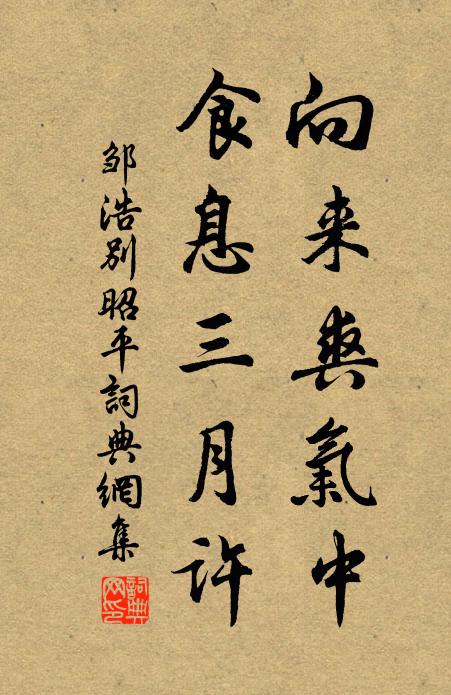 向来爽氣中
食息三月許
邹浩别昭平詞典網集
詞典
网印